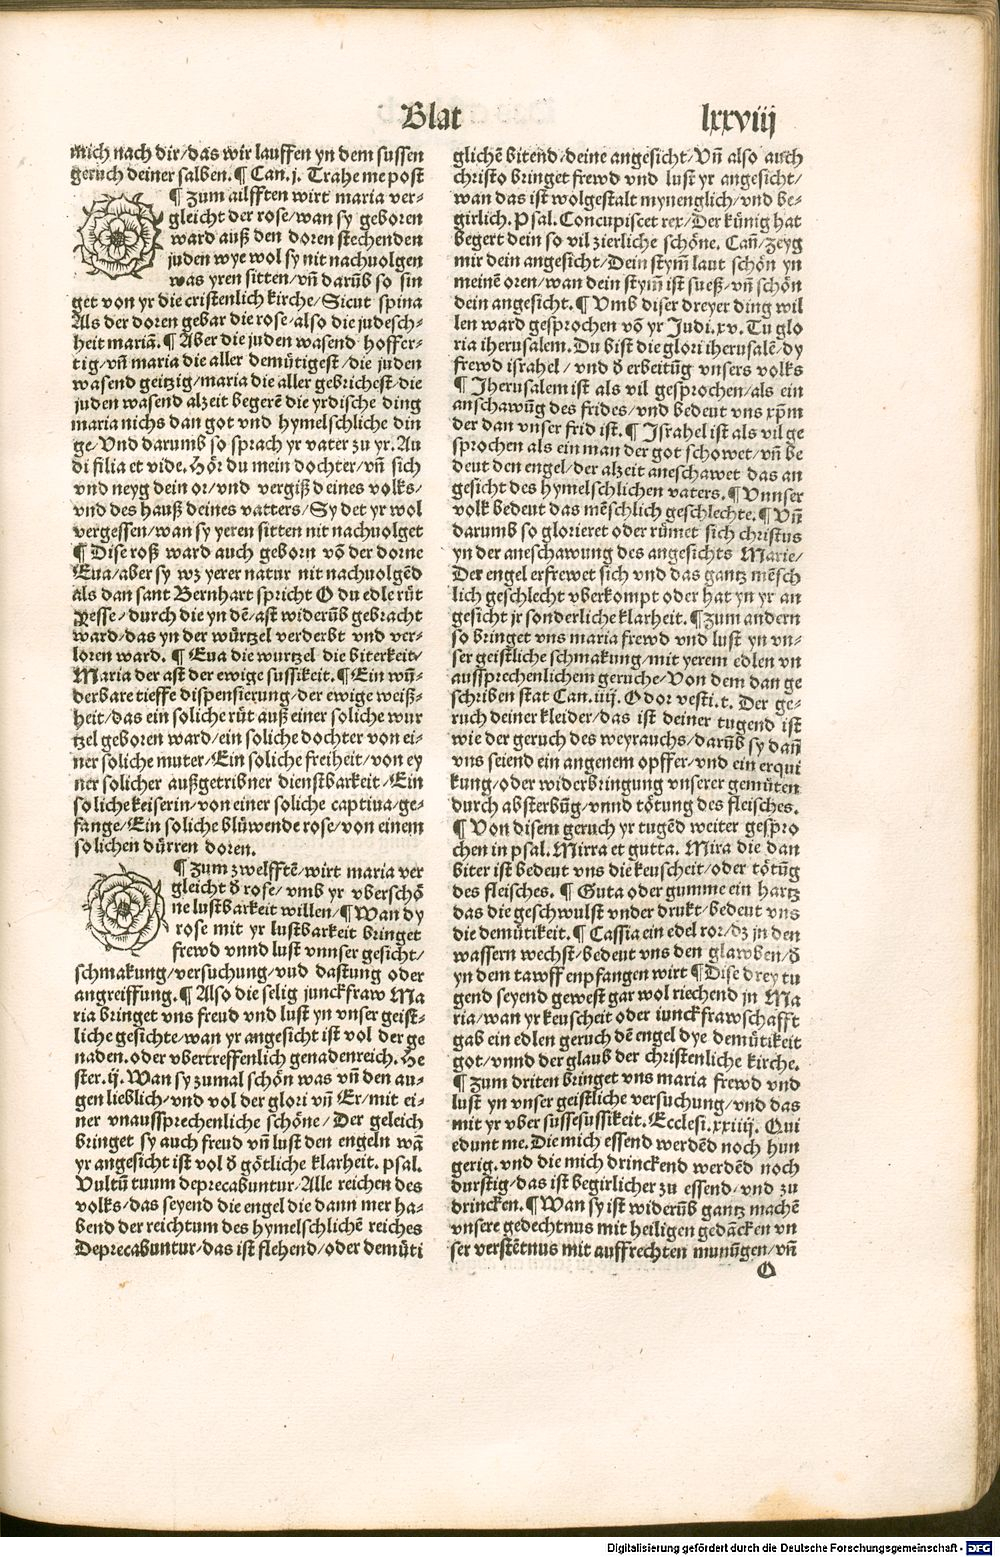 Blat lxxviij
mich nach dir/das wir lauffen yn dem sussen
geruch deiner salben. ¶ Can.j. Trahe me post
¶ Zum ailfften wirt maria ver-
gleicht der rose/wan sy geboren
ward auß den doren stechenden
juden wye wol sy nit nachuolgen
was yren sitten/vñ darũb so sin
get von yr die cristenlich kirche/Sicut spina
Als der doren gebar die rose/also die judesch-
heit mariã. ¶ Aber die juden wasend hoffer-
tig/vñ maria die aller demütigest/die juden
wasend geitzig/maria die aller gebrichest/die
juden wasend alzeit begerẽ die yrdische ding
maria nichs dan got vnd hymelschliche din
ge/Vnd darumb so sprach yr vater zu yr. Au
di filia et vide. Hör du mein dochter/vñ sich
vnd neyg dein or/vnd vergiß deines volks/
vnd des hauß deines vatters/Sy det yr wol
vergessen/wan sy yeren sitten nit nachuolget
¶ Dise roß ward auch geborn võ der dorne
Eua/aber sy wz yerer natur nit nachuolgẽd
als dan sant Bernhart spricht O du edle rüt
Yesse/durch die yn dẽ/ast widerũb gebracht
ward/das yn der würtzel verderbt vnd ver-
loren ward. ¶ Eua die wurtzel die biterkeit/
Maria der ast der ewige sussikeit. ¶ Ein wũ-
derbare tieffe dispensierung/der ewige weiß-
heit/das ein soliche rüt auß einer soliche wur
tzel geboren ward/ein soliche dochter von ei-
ner soliche muter/Ein soliche freiheit/von ey
ner solicher außgetribner dienstbarkeit/Ein
soliche keiserin/von einer soliche captiua/ge-
fange/Ein soliche blüwende rose/von einem
solichen dürren doren.
¶ Zum zwelfftẽ/wirt maria ver
gleicht ď rose/vmb yr vberschö
ne lustbarkeit willen/¶ Wan dy
rose mit yr lustbarkeit bringet
frewd vnnd lust vnnser gesicht/
schmakung/versuchung/vnd dastung oder
angreiffung. ¶ Also die selig junckfraw Ma
ria bringet vns freud vnd lust yn vnser geist-
liche gesichte/wan yr angesicht ist vol der ge
naden. oder vbertreffenlich genadenreich. He
ster.ij. Wan sy zumal schön was vñ den au-
gen lieblich/vnd vol der glori vñ Er/mit ei-
ner vnaussprechenliche schöne/Der geleich
bringet sy auch freud vñ lust den engeln wã
yr angesicht ist vol ď götliche klarheit. psal.
Vultũ tuum deprecabuntur/Alle reichen des
volks/das seyend die engel die dann mer ha-
bend der reichtum des hymelschlichẽ reiches
Deprecabuntur/das ist flehend/oder demüti
glichẽ bitend/deine angesicht/Vñ also auch
christo bringet frewd vnd lust yr angesicht/
wan das ist wolgestalt mynenglich/vnd be-
girlich. Psal. Concupiscet rex/Der künig hat
begert dein so vil zierliche schöne. Cañ/Zeyg
mir dein angesicht/Dein stym̃ laut schön yn
meinẽ oren/wan dein stym̃ ist sueß/vñ schön
dein angesicht. ¶ Vmb diser dreyer ding wil
len ward gesprochen võ yr Judi.xv. Tu glo
ria iherusalem. Du bist die glori iherusalẽ/dy
frewd israhel / vnd ď erbeitũg vnsers volks
¶ Jherusalem ist als vil gesprochen/als ein
anschawũg des frides/vnd bedeut vns xp̃m
der dan vnser frid ist. ¶ Jsrahel ist als vil ge
sprochen als ein man der got schowet/vñ be
deut den engel/der alzeit aneschawet das an
gesicht des hymelschlichen vaters. ¶ Vnnser
volk bedeut das mẽschlich geschlechte. ¶ Vñ
darumb so glorieret oder rümet sich christus
yn der aneschawung des angesichts Marie/
Der engel erfrewet sich vnd das gantz mẽsch
lich geschlecht vberkompt oder hat yn yr an
gesicht jr sonderliche klarheit. ¶ Zum andern
so bringet vns maria frewd vnd lust yn vn-
ser geistliche schmakung/mit yerem edlen vn
aussprechenlichem geruche/Von dem dan ge
schriben stat Can.iiij. Odor vesti.t. Der ge-
ruch deiner kleider/das ist deiner tugend ist
wie der geruch des weyrauchs/darũb sy dañ
vns seiend ein angenem opffer/vnd ein erqui
kung/oder widerbringung vnserer gemüten
durch absterbũg/vnnd tötung des fleisches.
¶ Von disem geruch yr tugẽd weiter gespro
chen in psal. Mirra et gutta. Mira die dan
biter ist bedeut vns die keuscheit/oder tötũg
des fleisches. ¶ Guta oder gumme ein hartz
das die geschwulst vnder drukt/bedeut vns
die demütikeit. ¶ Cassia ein edel ror/dz jn den
wassern wechst/bedeut vns den glawben/ď
yn dem tawff enpfangen wirt ¶ Dise drey tu
gend seyend gewest gar wol riechend jn Ma
ria/wan yr keuscheit oder iunckfrawschafft
gab ein edlen geruch dẽ engel dye demütikeit
got/vnnd der glaub der christenliche kirche.
¶ Zum driten bringet vns maria frewd vnd
lust yn vnser geistliche versuchung/vnd das
mit yr vber sussesussikeit. Ecclesi.xxiiij. Qui
edunt me. Die mich essend werdẽd noch hun
gerig. vnd die mich drinckend werdẽd noch
durstig/das ist begirlicher zu essend/vnd zu
drincken. ¶ Wan sy ist widerũb gantz machẽ
vnsere gedechtnus mit heiligen gedãcken vn
ser verstẽtnus mit auffrechten munũgen/vñ
O
Digitalisierung gefördert durch die Deutsche Forschungsgemeinschaft - DFG